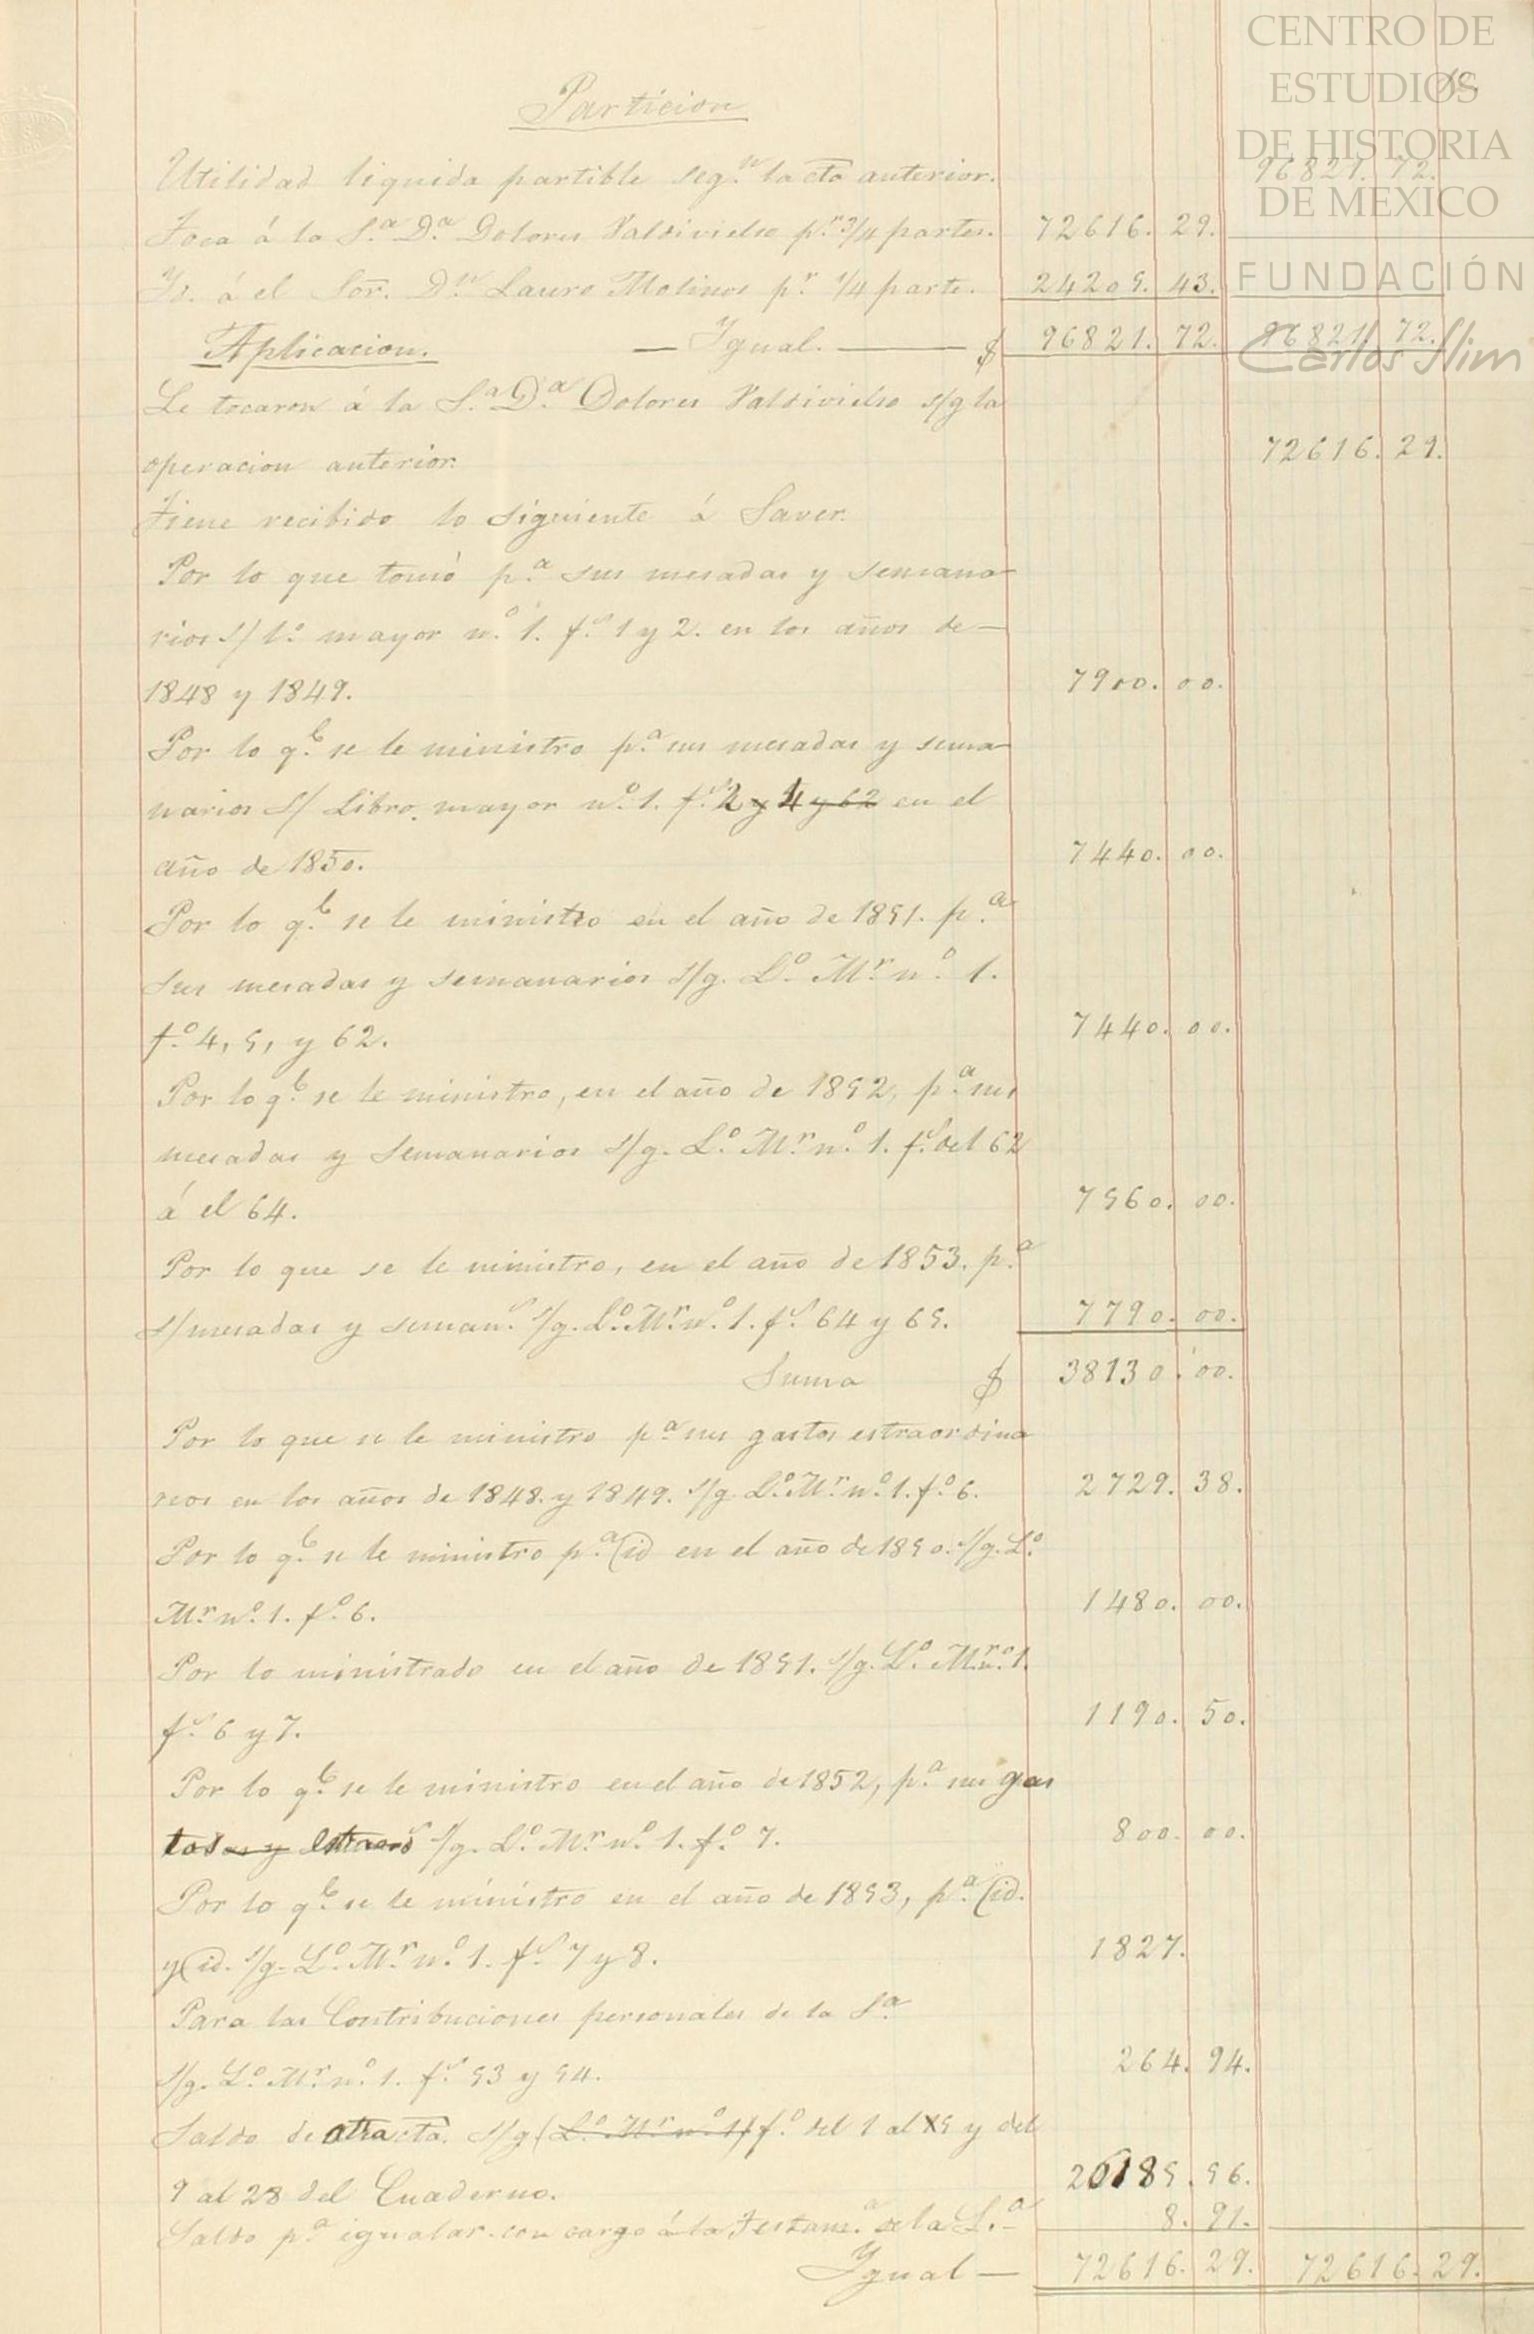 CENTRO DE
ESTUDIOS
DE HISTORIA
DE MEXICO
FUNDACIÓN
Carlos Slim
Particion
Utilidad liquida partible seg.n la cta anterior. 96821. 72.
Toca á la S.a D.a Dolores Valdivielso p.r 3/4 partes. 72616. 29.
Id. á el Sor. D.n Lauro Molinos p.r 1/4 parte. 24205. 43.
— Igual. — $ 96821. 72. 96821. 72.
Aplicacion.
Le tocaron á la S.a D.a Dolores Valdivielso s/g la
operacion anterior. 72616. 29.
Tiene recibido lo siguiente á Saver.
Por lo que tomó p.a sus mesadas y semana-
rios s/ l.o mayor n.o 1. f.s 1 y 2. en los años de—
1848 y 1849. 7900. 00.
Por lo q.e se le ministro p.a sus mesadas y sema-
narios s/ Libro mayor n.o 1. f.s 2 y 4 y 62 en el
año de 1850. 7440. 00.
Por lo q.e se le ministro en el año de 1851. p.a
sus mesadas y semanarios s/g. L.o M.r n.o 1.
f.o 4, 5, y 62. 7440. 00.
Por lo q.e se le ministro, en el año de 1852, p.a sus
mesadas y semanarios s/g. L.o M.r n.o 1. f.s del 62
á el 64. 7560. 00.
Por lo que se le ministro, en el año de 1853. p.a
s/ mesadas y seman.s s/g. L.o M.r n.o 1. f.s 64 y 65. 7790. 00.
Suma $ 38130. 00.
Por lo que se le ministro p.a sus gastos estraordina
rios en los años de 1848. y 1849. s/g. L.o M.r n.o 1. f.o 6. 2729. 38.
Por lo q.e se le ministro p.a id en el año de 1850. s/g. L.o
M.r n.o 1. f.o 6. 1480. 00.
Por lo ministrado en el año de 1851. s/g. L.o M.r n.o 1.
f.s 6 y 7. 1190. 50.
Por lo q.e se le ministro en el año de 1852, p.a sus gas
tos y estraors s/g. L.o M.r n.o 1. f.o 7. 800. 00.
Por lo q.e se le ministro en el año de 1853, p.a id.
y id. s/g. L.o M.r n.o 1. f.s 7 y 8. 1827.
Para las Contribuciones personales de la S.a
s/g. L.o M.r n.o 1. f.s 53 y 54. 264. 94.
Saldo de otra cta. s/g (L.o M.r n.o 1) f.o del 1 al 5 y del
9 al 28 del Cuaderno. 26185. 56.
Saldo p.a igualar con cargo á la Testam.a de la S.a 8. 91.
Igual — 72616. 29. 72616. 29.